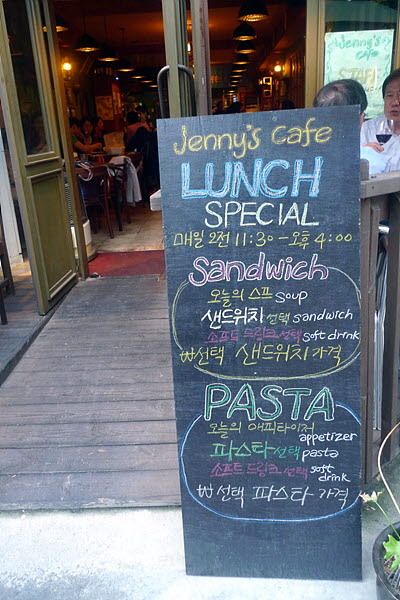 Jenny's Cafe
LUNCH
SPECIAL
매일 오전 11:30 - 오후 4:00
Sandwich
오늘의 스프 soup
샌드위치 선택 sandwich
소프트 드링크 선택 soft drink
₩ 선택 샌드위치 가격
PASTA
오늘의 애피타이저
appetizer
파스타 선택 pasta
소프트 드링크 선택 soft
drink
₩ 선택 파스타 가격
Jenny's
cafe